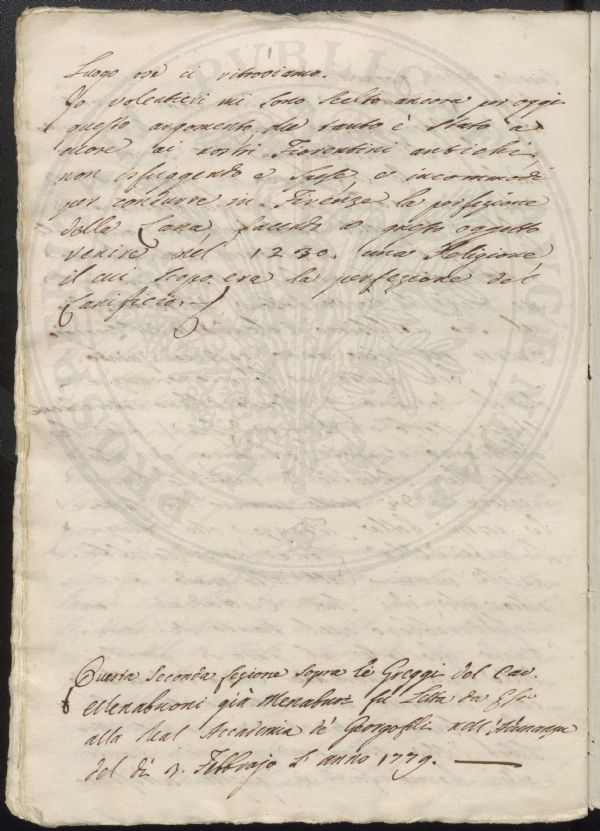 Luogo ove ci ritroviamo.
Io volentieri mi sono scelto ancora per oggi
questo argomento che tanto è stato a
cuore ai nostri Fiorentini antichi,
non isfuggendo e spese e incommodi
per condurre in Firenze la perfezione
della Lana, facendo a questo oggetto
venire nel 1230. una Religione
il cui scopo era la perfezione del
Lanificio.
Questa Seconda Lezione sopra le Greggi del Cav.
Menabuoni già Menabuoi fù Letta da Esso
alla Real Accademia de' Georgofili nell'Adunanza
del dì 3. Febbrajo L'anno 1779.
PROSPERITATI PUBLICAE AUGENDAE